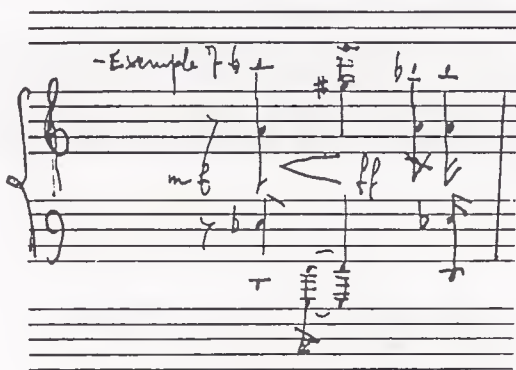 -Example 7
mf ff